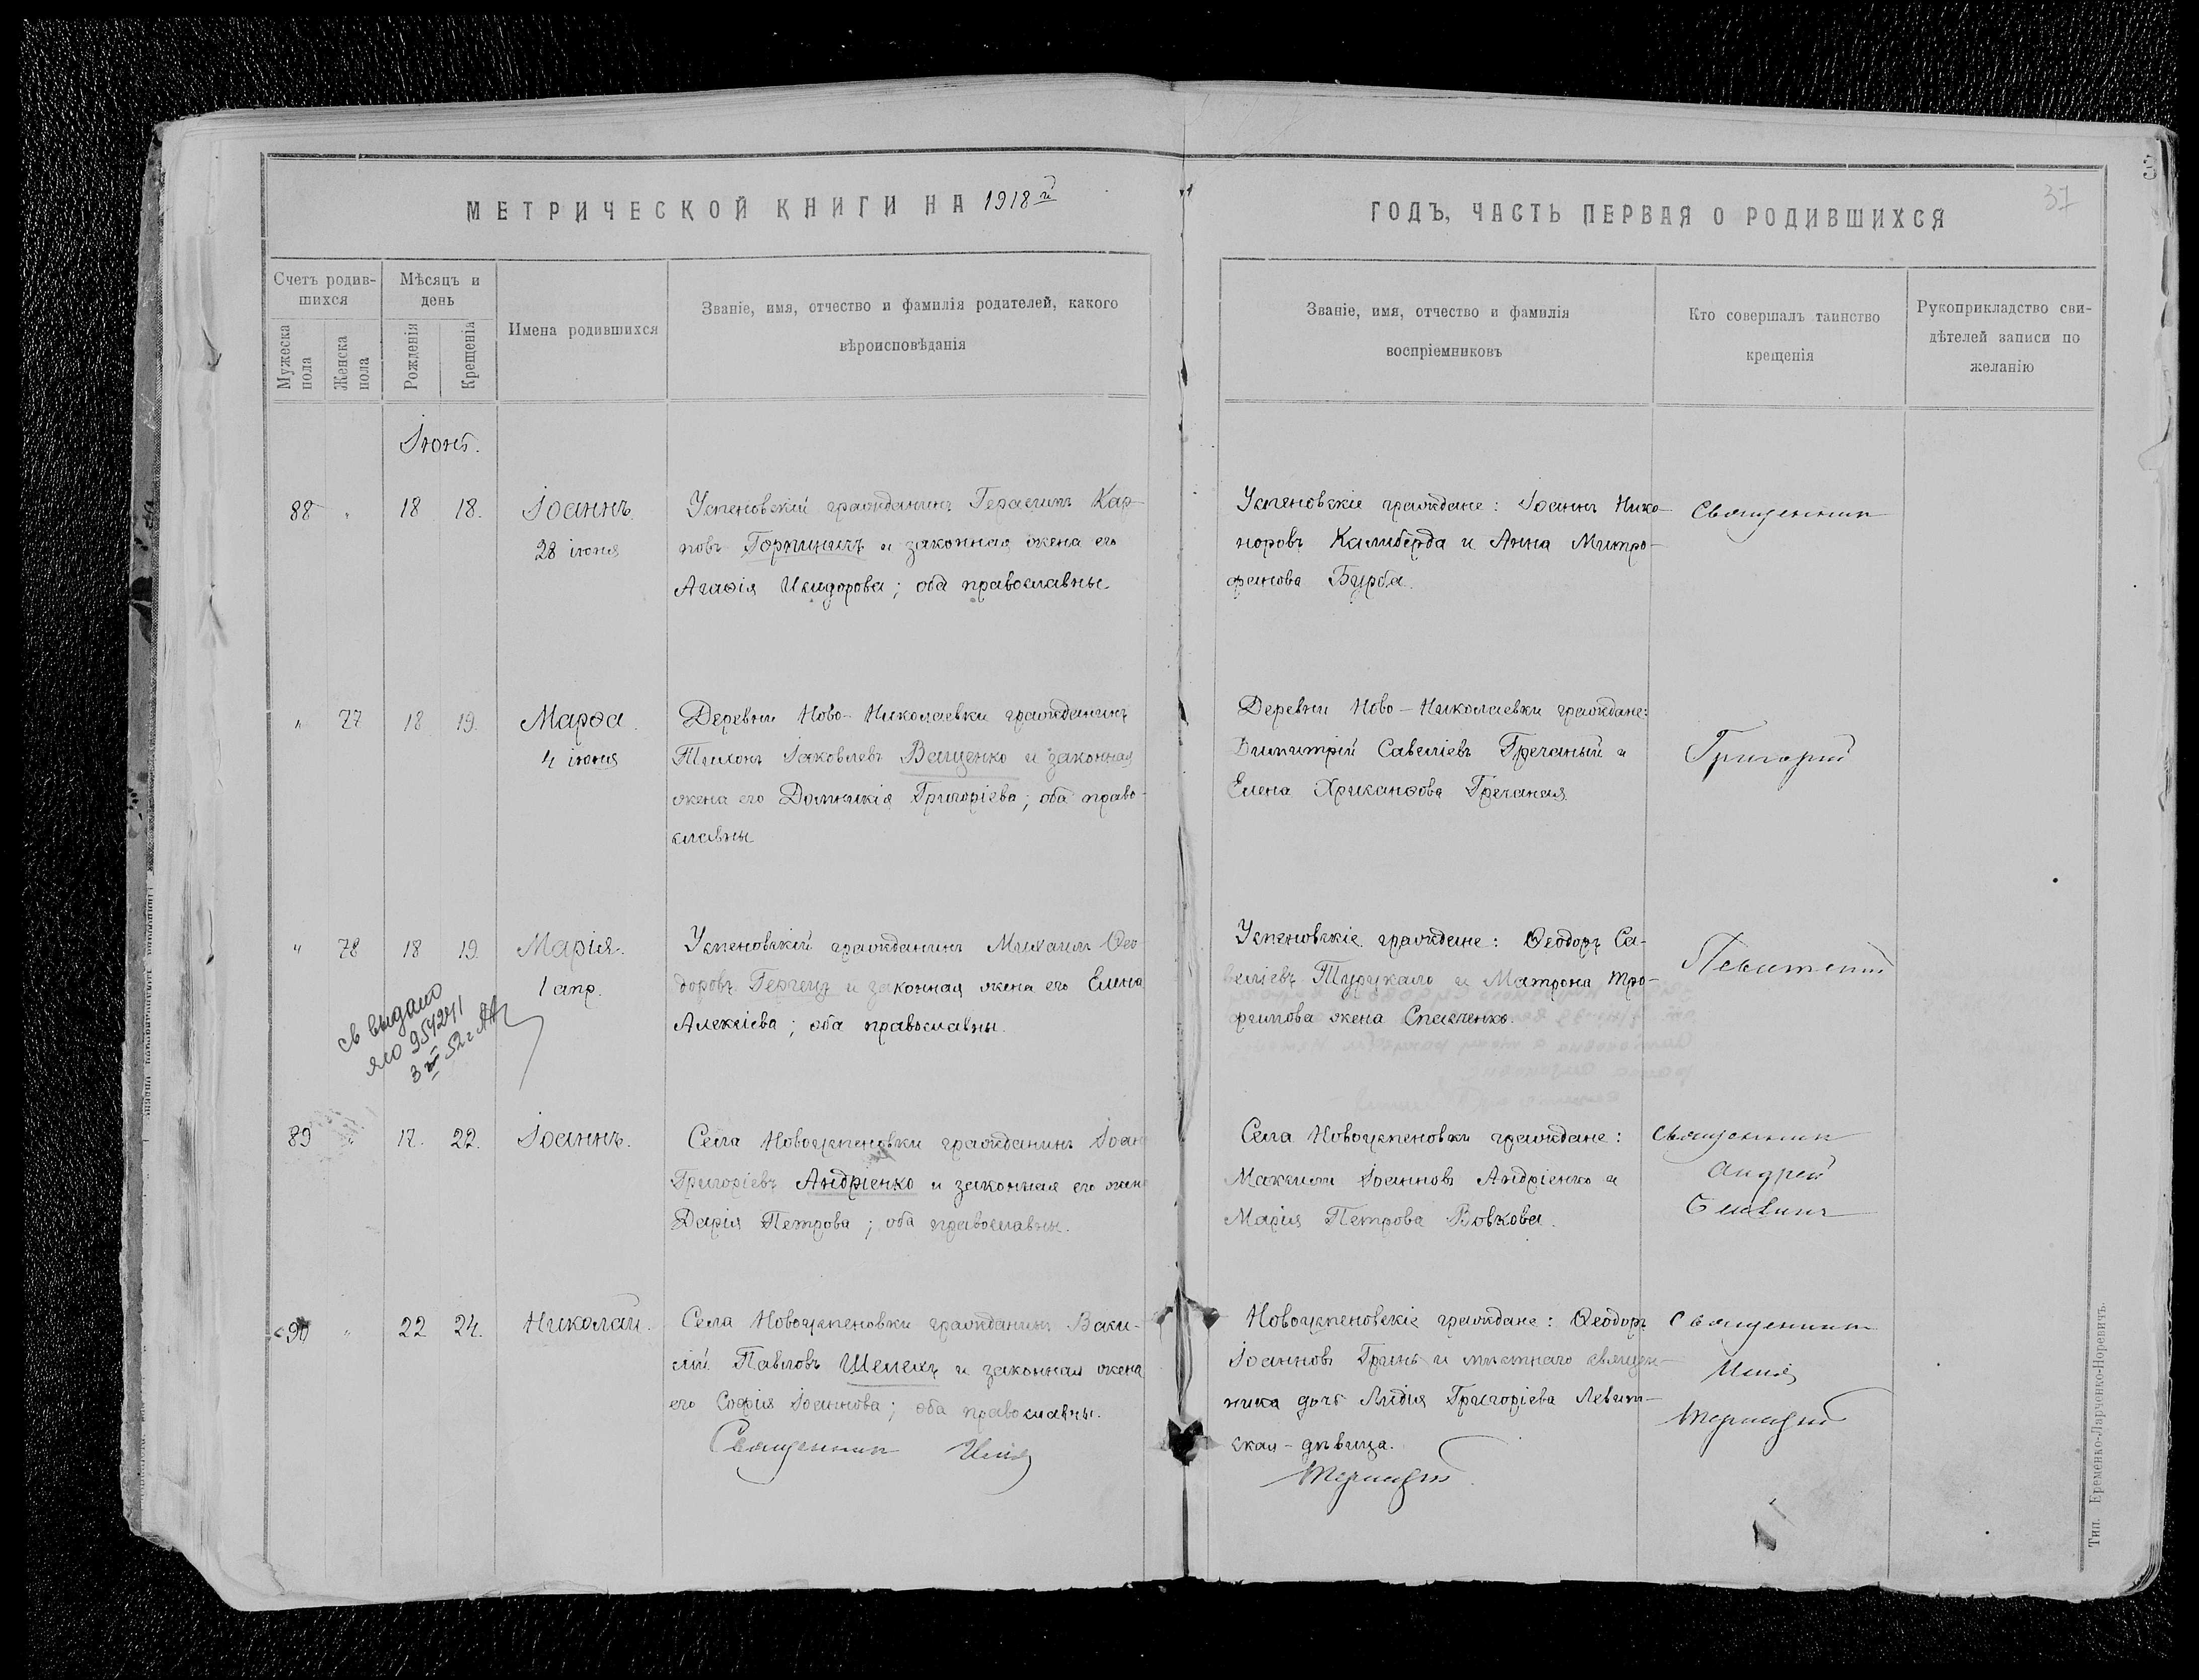 МЕТРИЧЕСКОЙ КНИГИ НА 1918й
ГОДЪ, ЧАСТЬ ПЕРВАЯ О РОДИВШИХСЯ
37
3
Счетъ родив-
шихся
Мужеска
пола
Женска
пола
Мѣсяцъ и
день
Рожденія
Крещенія
Имена родившихся
Званіе, имя, отчество и фамилія родителей, какого
вѣроисповѣданія
Званіе, имя, отчество и фамилія
воспріемниковъ
Кто совершалъ таинство
крещенія
Рукоприкладство сви-
дѣтелей записи по
желанію
Іюнь.
88 " 18 18. Іоаннъ.
28 іюня
Успеновскій гражданинъ Герасимъ Кар-
повъ Горпиничъ и законная жена его
Агаѳія Исидорова; оба православны.
Успеновскіе граждане: Іоаннъ Нико-
норовъ Калиберда и Анна Митро-
фанова Бурба.
Священникъ
" 77 18 19. Марѳа.
4 іюня
Деревни Ново-Николаевки гражданинъ
Тихонъ Іаковлевъ Ващенко и законная
жена его Домникія Григоріева; оба право-
славны.
Деревни Ново-Николаевки граждане:
Димитрій Савеліевъ Гречаный и
Елена Хрисанѳова Гречаная.
Григорій
" 78 18 19. Марія.
1 апр.
Успеновскій гражданинъ Михаилъ Ѳео
доровъ и законная жена его Елена
Алексіева; оба православны.
Успеновскіе граждане: Ѳеодоръ Са-
веліевъ Турукало и Матрона Тро-
фимова жена Спасченко.
Левитскій
св выдано
ЯЮ 954241
52г
89 " 17. 22. Іоаннъ.
Села Новоуспеновки гражданинъ Іоан
Григоріевъ Андріенко и законная его жен
Дарія Петрова; оба православны.
Села Новоуспеновки граждане:
Максимъ Іоанновъ Андріенко и
Марія Петрова Вовкова.
Священникъ
Андрей
90 " 22 24. Николай.
Села Новоуспеновки гражданинъ Васи-
лій Павловъ Шелехъ и законная жена
его Софія Іоаннова; оба православны.
Новоуспеновскіе граждане: Ѳеодоръ
Іоанновъ Гринь и мѣстнаго священ-
ника дочь Лидія Григоріева Левит-
ская - дѣвица.
Священникъ
Илія
Священникъ Илія
Тип. Еременко-Ларченко-Норевичъ.